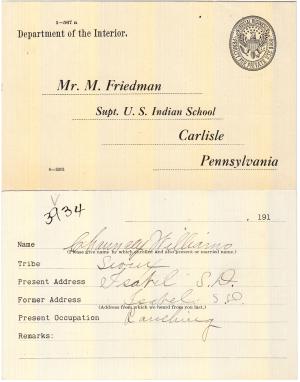 5—567 a
Department of the Interior.
Mr. M. Friedman
Supt. U. S. Indian School
Carlisle
Pennsylvania
6—5203
3934
, 191
Name Chauncey Williams
(Please give name by which enrolled and also present or married name.)
Tribe Sioux
Present Address Isabel S.D.
Former Address Isabel S.D.
(Address from which we heard from you last.)
Present Occupation Ranching
Remarks: